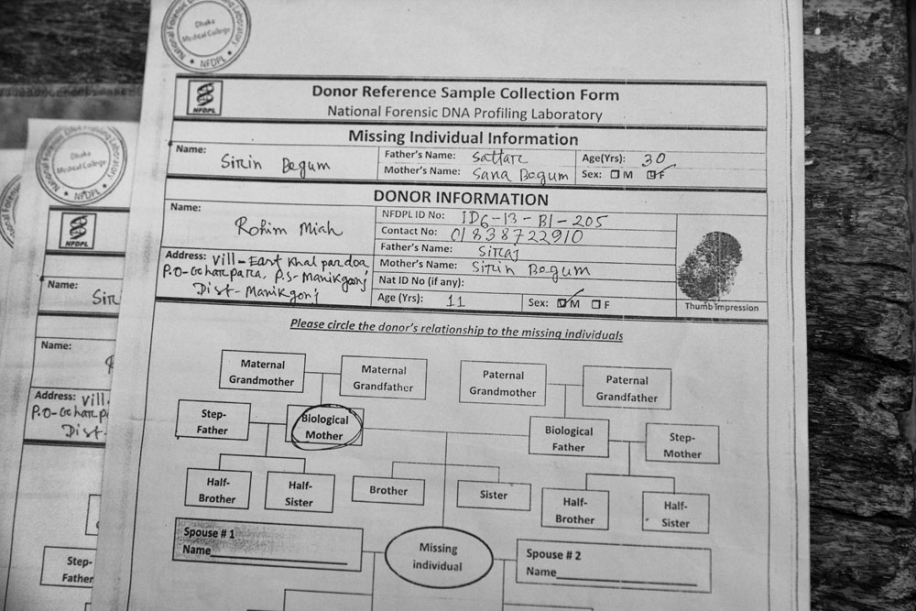 National Forensic DNA Profiling Laboratory
Dhaka
Medical College
NFDPL
NFDPL
Donor Reference Sample Collection Form
National Forensic DNA Profiling Laboratory
Missing Individual Information
Name: Sirin Begum
Father's Name: Sattar
Age(Yrs): 30
Mother's Name: Sana Begum
Sex: M F
DONOR INFORMATION
Name: Rohim Miah
NFDPL ID No: ID6-13-B1-205
Contact No: 01838722910
Father's Name: Siraj
Mother's Name: Sirin Begum
Nat ID No (if any):
Age (Yrs): 11
Sex: M F
Thumb Impression
Address: Vill-East Khalpardoa
P.O-Gharpara, P.S-Manikganj
Dist-Manikgonj
Please circle the donor's relationship to the missing individuals
Maternal
Grandmother
Maternal
Grandfather
Paternal
Grandmother
Paternal
Grandfather
Step-
Father
Biological
Mother
Biological
Father
Step-
Mother
Half-
Brother
Half-
Sister
Brother
Sister
Half-
Brother
Half-
Sister
Spouse # 1
Name
Missing
individual
Spouse # 2
Name
Dhaka
Medical College
NFDPL
NFDPL
Name: Sir
Name:
Address: Vill
P.O-Gharp
Dist-
Step-
Father